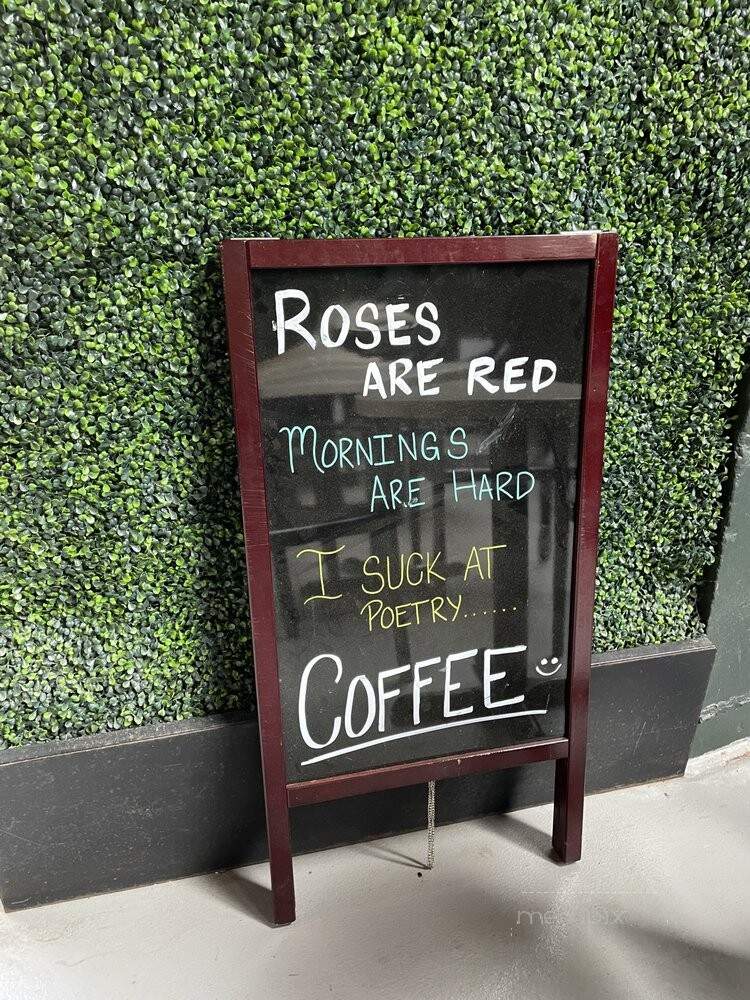 ROSES
ARE RED
MORNINGS
ARE HARD
I SUCK AT
POETRY......
COFFEE